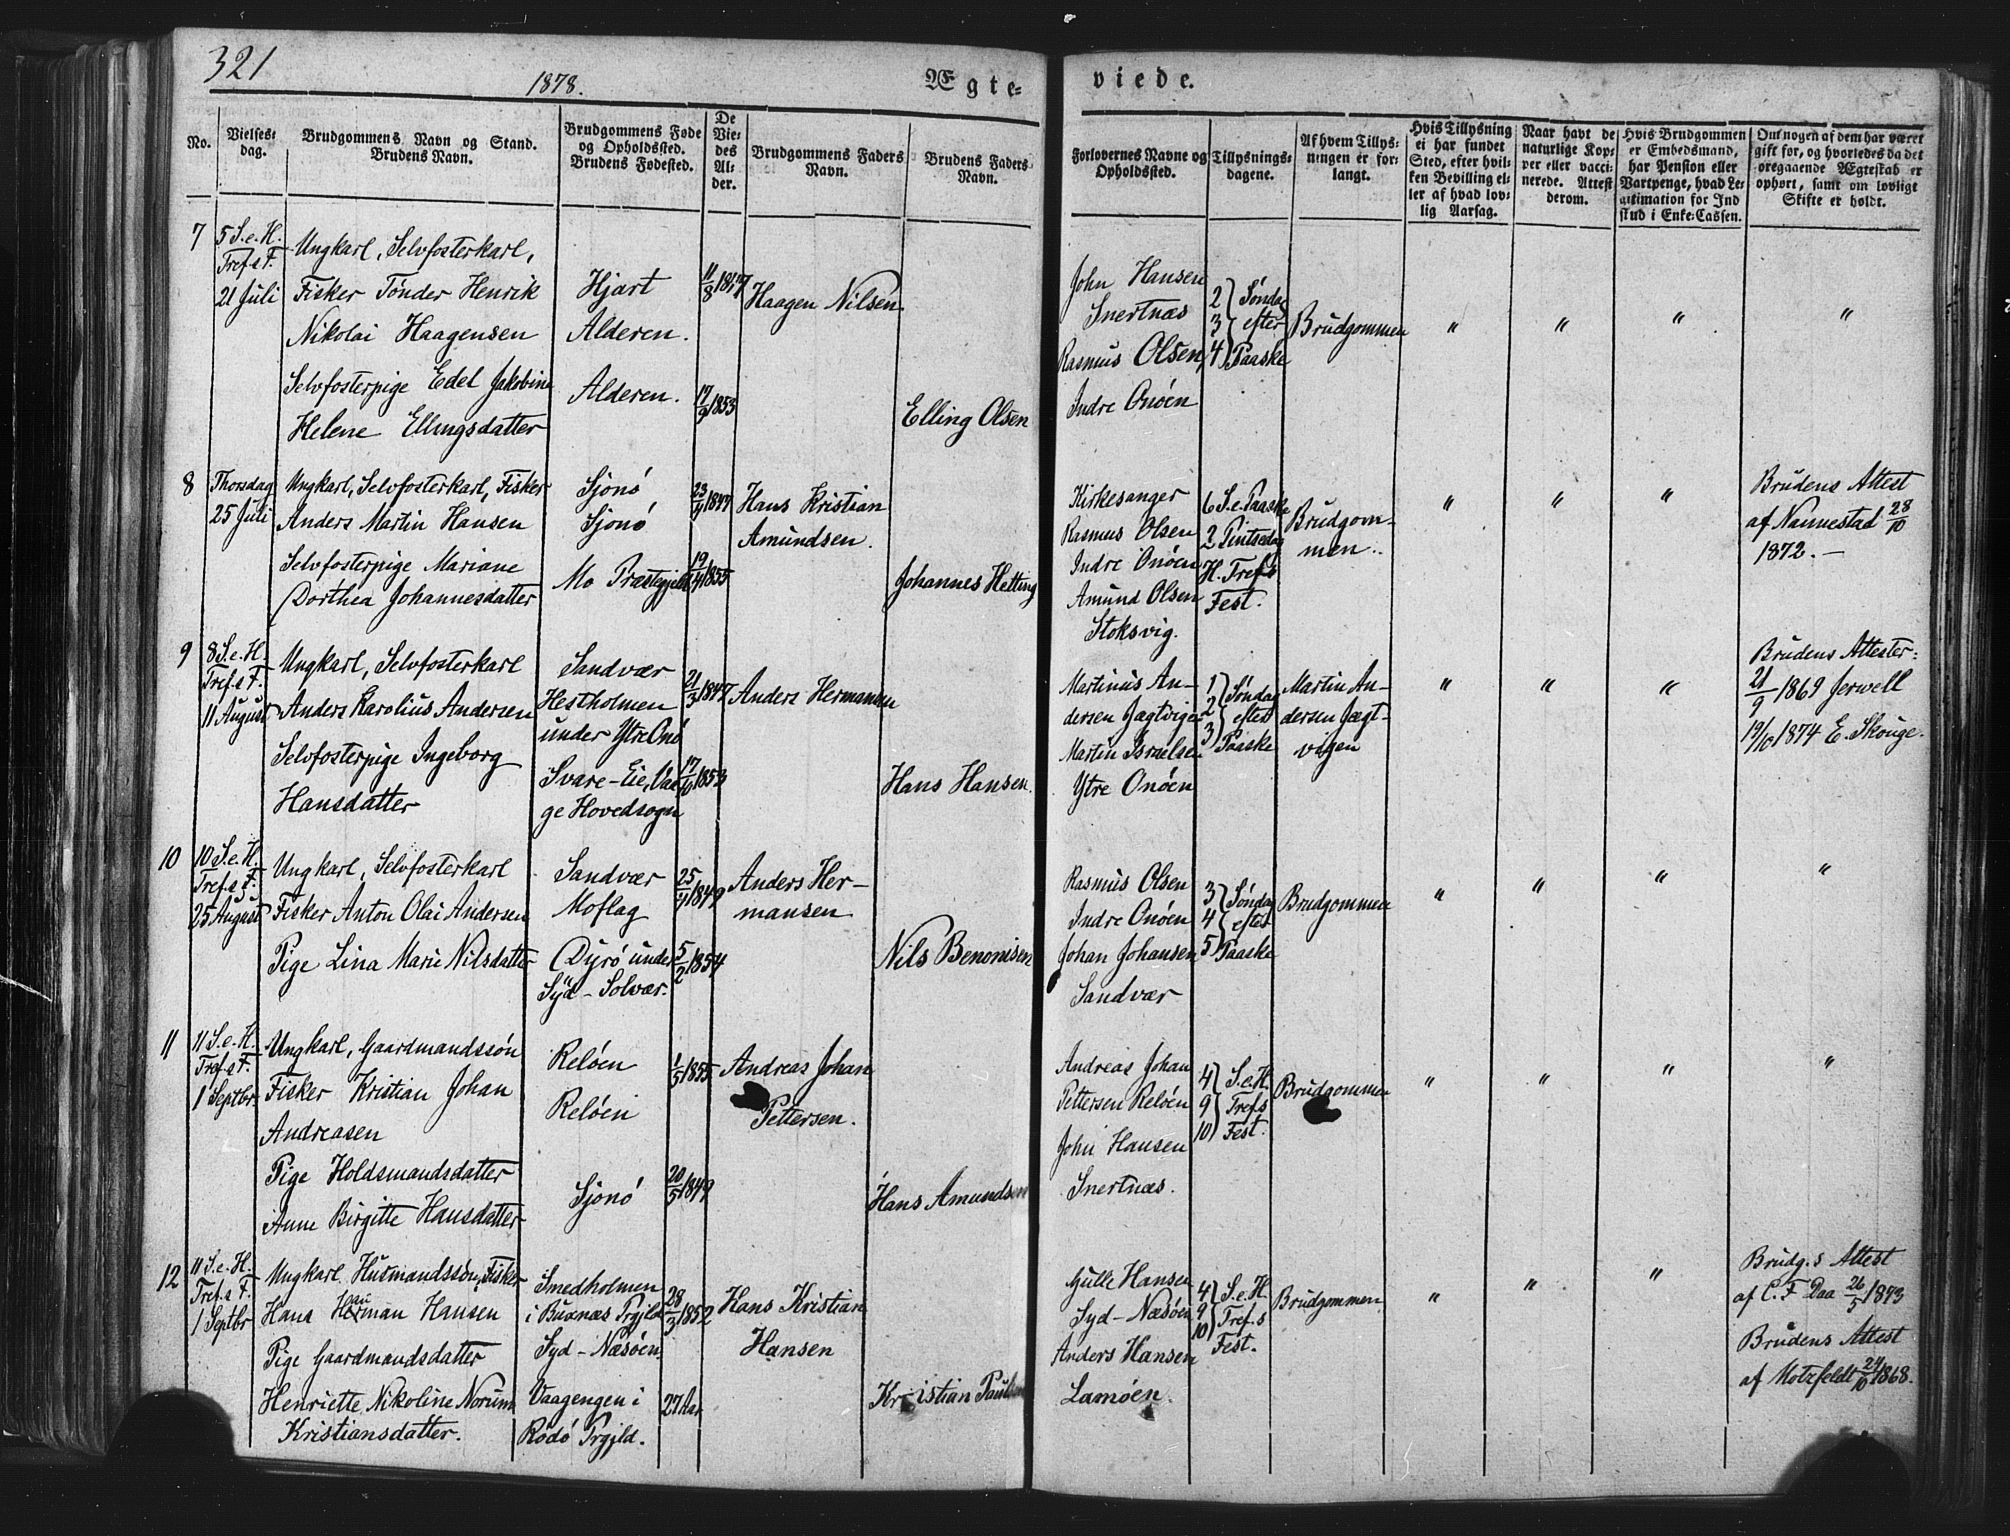 321
1878.
Ægte-
viede.
No.
Vielses-
dag.
Brudgommens Navn og Stand.
Brudens Navn.
Brudgommens Føde
og Opholdssted.
Brudens Fødested.
De
Vie-
des
Al-
der.
Brudgommens Faders
Navn.
Brudens Faders
Navn.
Forlovernes Navne og
Opholdssted.
Tillysnings-
dagene.
Af hvem Tillys-
ningen er for-
langt.
Hvis Tillysning
ei har fundet
Sted, efter hvil-
ken Bevilling el-
ler af hvad lov-
lig Aarsag.
Naar havt de
naturlige Kop-
per eller vacci-
nerede. Attest
derom.
Hvis Brudgommen
er Embedsmand,
har Pension eller
Vartpenge, hvad Le-
gitimation for Ind
skud i Enke-Cassen.
Om nogen af dem har været
gift før, og hvorledes da det
foregaaende Ægteskab er
ophørt, samt om lovligt
Skifte er holdt.
7
5 S. e. H.
Tref.s F.
21 Juli
Ungkarl, Selvfosterkarl,
Fisker Tønder Henrik
Nikolai Haagensen
Selvfosterpige Edel Jakobine
Helene Ellingsdatter
Hjart
Alderen.
Alderen.
11/8
17/9 1853
Haagen Nilsen
Elling Olsen
John Hansen
Snertnæs
Rasmus Olsen,
Indre Onøen
2 } Søndag
3 } efter
4 } Paaske
Brudgommen
"
"
"
"
8
Thorsdag
25 Juli
Ungkarl, Selvfosterkarl, Fisker
Anders Martin Hansen
Selvfosterpige Mariane
Dorthea Johannesdatter
Sjonø
Sjonø
Mo Præstegjeld
1847
19/4 1855
Hans Kristian
Amundsen.
Johannes Hetting
Kirkesanger
Rasmus Olsen
Indre Onøen
Amund Olsen
Stoksvig.
6 S. e. Paaske
2 Pintsedag
H. Tref.s
Fest.
Brudgom-
men.
"
"
"
Brudens Attest
af Nannestad 28/10
1872. –
9
8 S. e. H.
Tref.s F.
11 August
Ungkarl, Selvfosterkarl
Anders Karolius Andersen
Selvfosterpige Ingeborg
Hansdatter
Sandvær
Hestholmen
under Ytre Onø
Svare-Eie, Vaa-
ge Hovedsogn
21/3 1847
17/10 1853
Anders Hermansen
Hans Hansen.
Martinus An-
dersen Jægtvigen
Martin Israelsen
Ytre Onøen
1 } Søndag
2 } efter
3 } Paaske
Martin An-
dersen Jægt-
vigen
"
"
"
Brudens Attester:
21/9 1869 Jerwell
19/10 1874 E. Skouge.
10
10 S. e. H.
Tref.s F.
25 August
Ungkarl, Selvfosterkarl
Fisker Anton Olai Andersen
Pige Lina Marie Nilsdatter
Sandvær
Moflag
Dyrø under
Syd-Solvær.
25/4 1849
5/2 1854
Anders Her-
mansen
Nils Benonisen
Rasmus Olsen
Indre Onøen
Johan Johansen
Sandvær
3 } Søndag
4 } efter
5 } Paaske
Brudgommen
"
"
"
"
11
11 S. e. H.
Tref.s F.
1 Septbr.
Ungkarl, Gaardmandssøn
Fisker Kristian Johan
Andreasen
Pige Holdsmandsdatter
Anne Birgitte Hansdatter
Reløen
Reløen
Sjonø
1/5 1855
20/5 1849
Andreas Johan
Pettersen.
Hans Amundsen
Andreas Johan
Pettersen Reløen
John Hansen
Snertnæs.
4 } S. e. H.
9 } Tref.s
10 } Fest.
Brudgommen
"
"
"
"
12
11 S. e. H.
Tref.s F.
1 Septbr
Ungkarl, Husmandssøn, Fisker
Hans Herman Hansen
Pige Gaardmandsdatter
Henriette Nikoline Norum
Kristiansdatter.
Smedholmen
i Buxnæs Prgjld.
Syd-Næsøen
Vaagengen i
Rødø Prgjld.
28/3 1852
27 Aar
Hans Kristian
Hansen
Kristian Paulsen
Gulle Hansen
Syd-Næsøen
Anders Hansen
Lamøen.
4 } S. e. H.
9 } Tref.s
10 } Fest.
Brudgommen
"
"
"
Brudg.s Attest
af C. F. Daa 26/5
Brudens Attest
af Motzfeldt 24/10 1868.